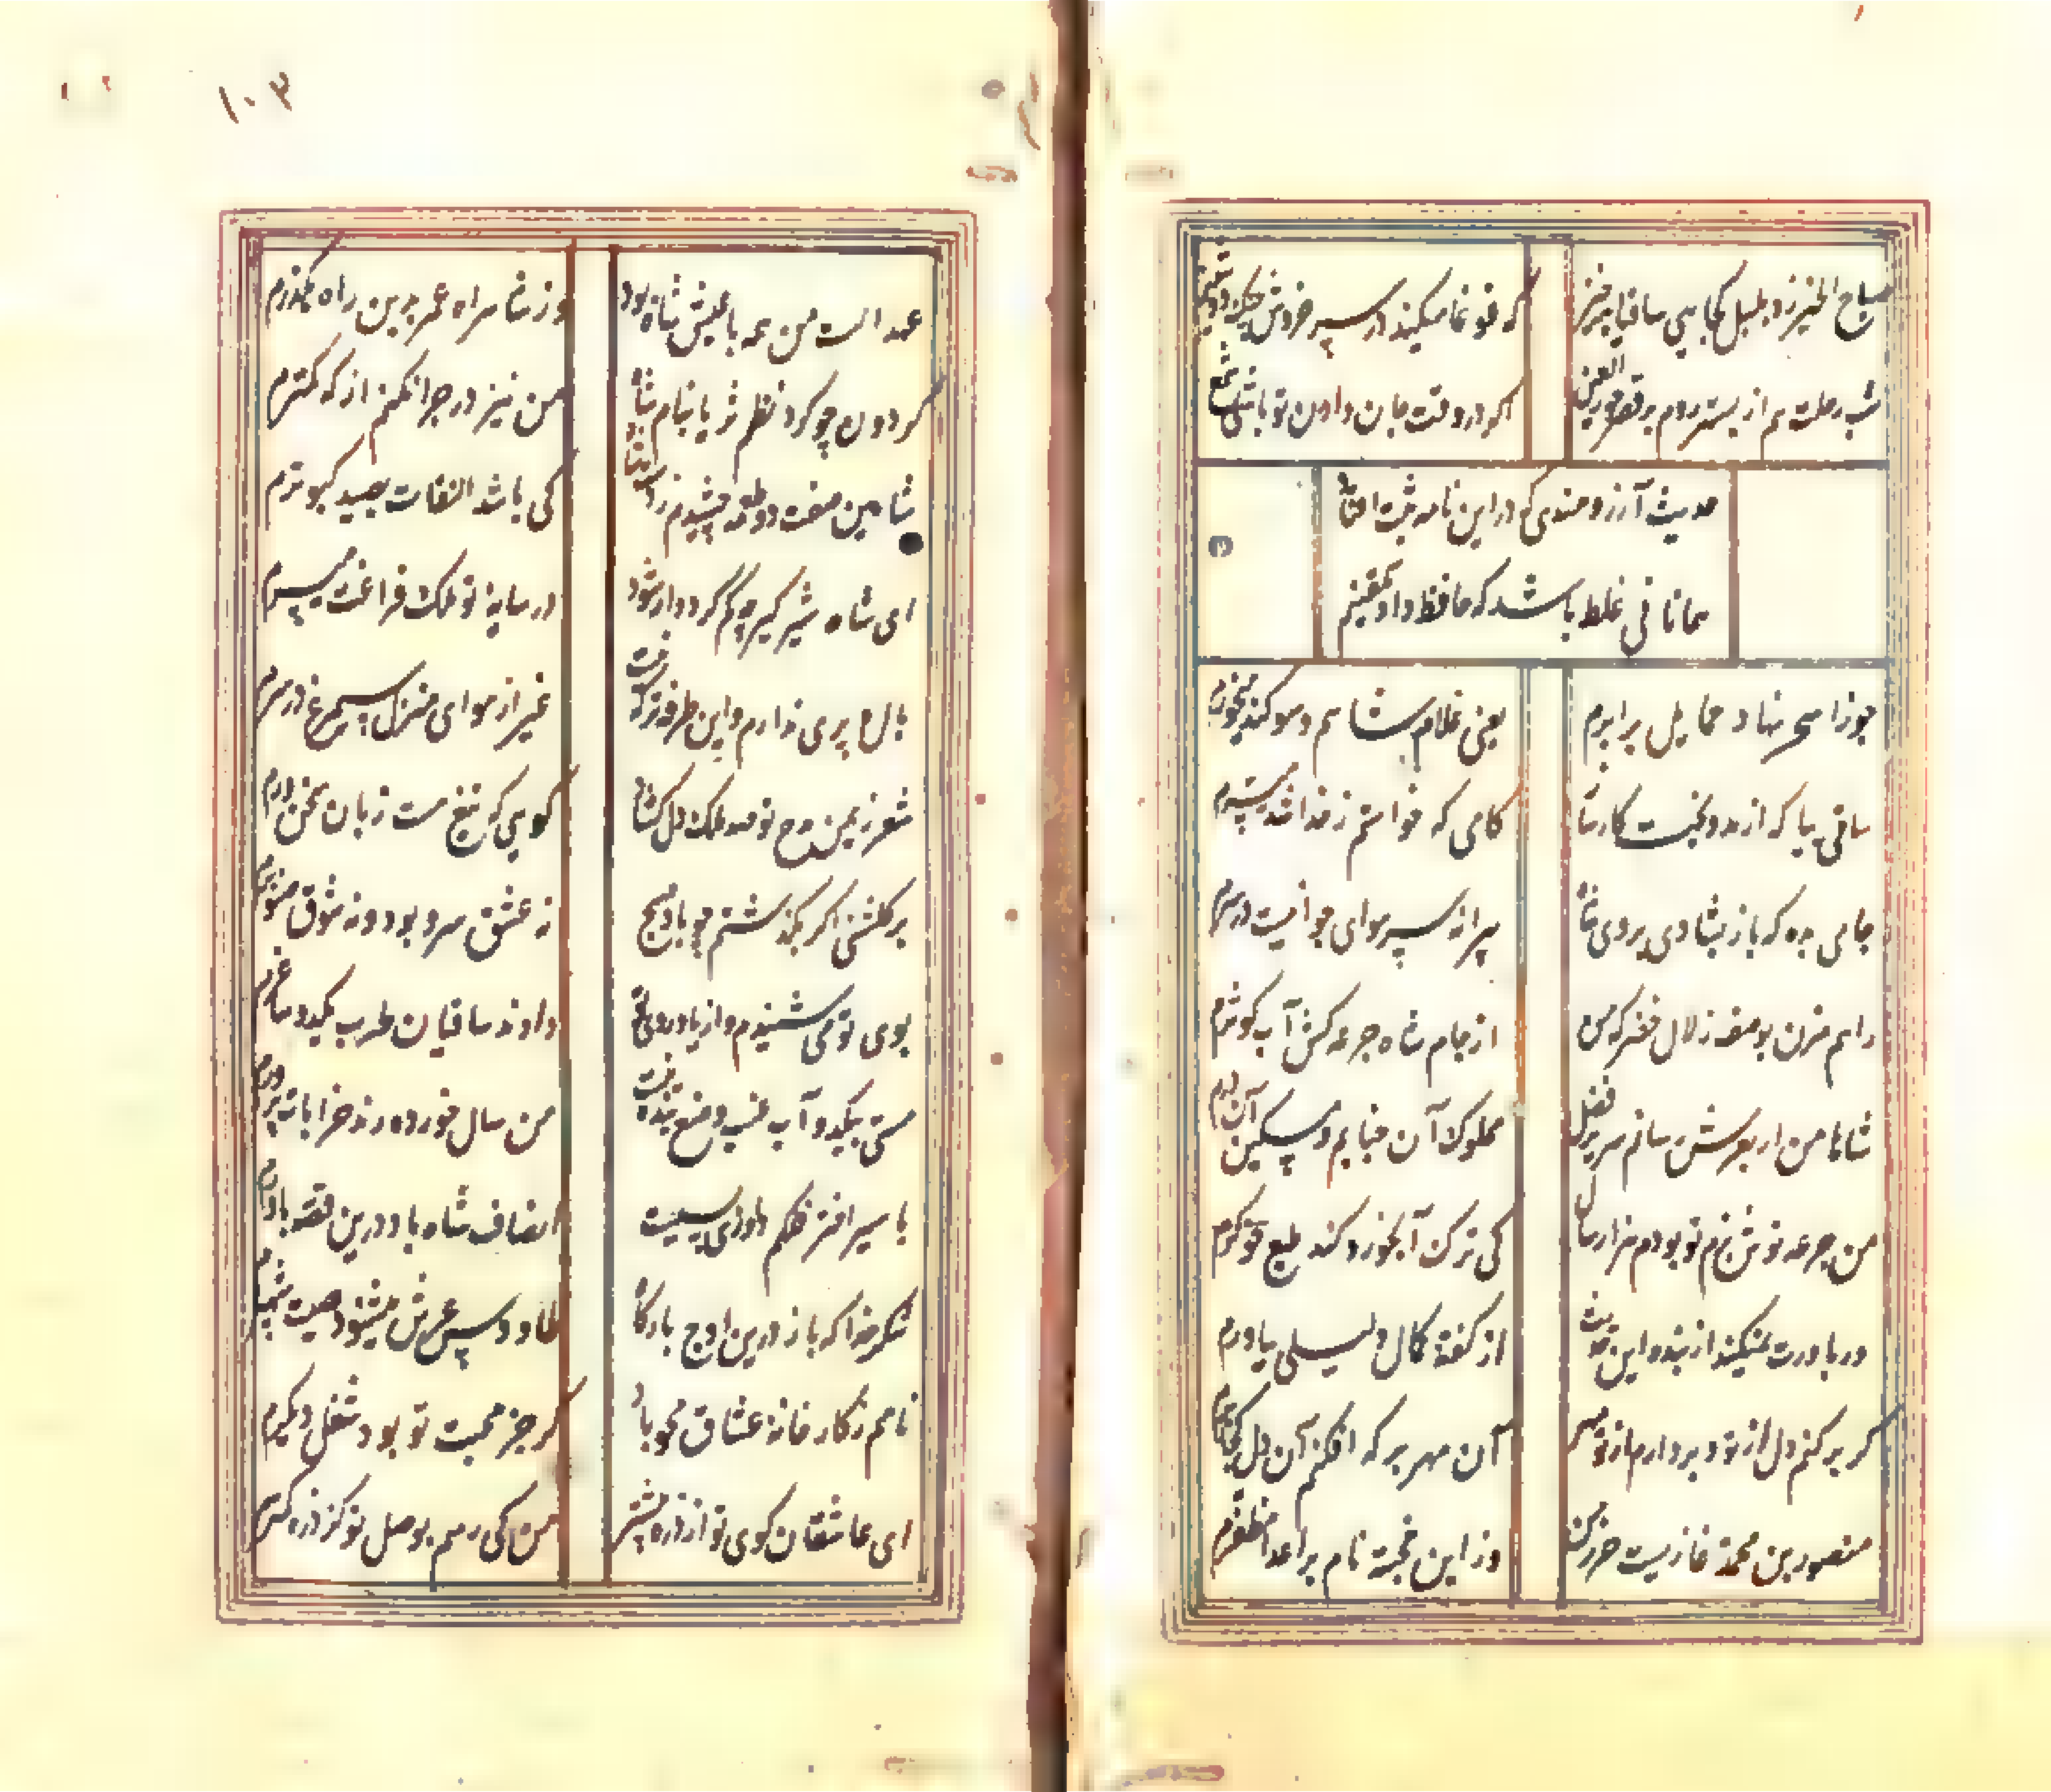 صباح الخیر زد بلبل کجایی ساقیا برخیز
که غوغا میکند در سر خروش چنک دوشینم
شب رحلت هم از بستر روم بر قصر حور العین
اکر در وقت جان دادن تو باشی شمع
حدیث آرزومندی که در این نامه ثبت افتاد
همانا بی غلط باشد که حافظ داد تلقینم
جوزا سحر نهاد حمایل برابرم
یعنی غلام شاهم و سوکند میخورم
ساقی بیا که از مدد بخت کارساز
کامی که خواستم ز خدا شد میسرم
جامی بده که باز بشادی روی شاه
پیرانه سر هوای جوانیست در سرم
راهم مزن بوصف زلال خضر که من
از جام شاه جرعه کش آب کوثرم
شاها من ار بعرش رسانم سریر فضل
مملوک آن جنابم و مسکین آن درم
من جرعه نوش بزم تو بودم هزار سال
کی ترک آبخورد کند طبع خوکرم
ور باورت نمیکند از بنده این حدیث
از کفته کمال دلیلی بیاورم
کر برکنم دل از تو و بردارم از تو مهر
آن مهر بر که افکنم آن دل کجا برم
منصور بن محمد غازیست حرز من
وز این خجسته نام بر اعدا مظفرم
۱۰۳
عهد الست من همه با عشق شاه بود
وز شاهراه عمر برین راه بگذرم
کردون چو کرد نظم ثریا بنام شاه
من نیز در چرا نکنم از که کمترم
شاهین صفت چو طعمه چشیدم ز دست شاه
کی باشد التفات بصید کبوترم
ای شاه شیر کیر چه کم کردد ار شود
در سایه تو ملک فراغت میسرم
بال و پری ندارم و این طرفه تر که نیست
غیر از هوای منزل سیمرغ در سرم
شعرم بیمن مدح تو صد ملک دل کشاد
کویی که تیغ ست زبان سخن ورم
بر کلشنی اکر بگذشتم چو باد صبح
نه عشق سرو بود و نه شوق صنوبرم
بوی تو می شنیدم و از یاد روی تو
دادند ساقیان طرب یکدو ساغرم
مستی بیکدو آب عنب وضع بنده نیست
من سال خورده رند خرابات پرورم
با سیر اختر فلکم داوری بسیست
انصاف شاه باد درین قصه یاورم
شکر خدا که باز درین اوج بارگاه
طاووس عرش میشنود صیت شهپرم
نامم ز کارخانه عشاق محو باد
کر جز محبت تو بود شغل دیگرم
ای عاشقان کوی تو از ذره بیشتر
من کی رسم بوصل تو کز ذره کمترم